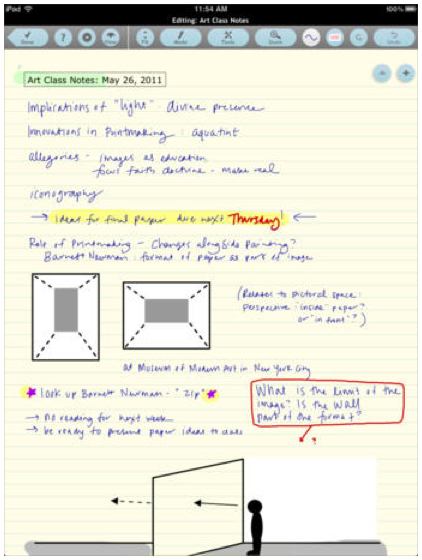 iPod
11:54 AM
100%
Editing: Art Class Notes
Tools
Undo
Art Class Notes: May 26, 2011
Implications of "light" - divine presence
Innovations in Printmaking : aquatint
allegories - images as education
focus faith doctrine - make real
iconography
→ ideas for final paper due next Thursday! ←
Role of Printmaking - Changes alongside Painting?
Barnett Newman : format of paper as part of image
(Relates to pictorial space:
perspective "inside" paper?
or "in front"?)
at Museum of Modern Art in New York City
look up Barnett Newman - "zip"
What is the limit of the
image? Is the wall
part of the format?
→ no reading for next week
→ be ready to present paper ideas to class
?